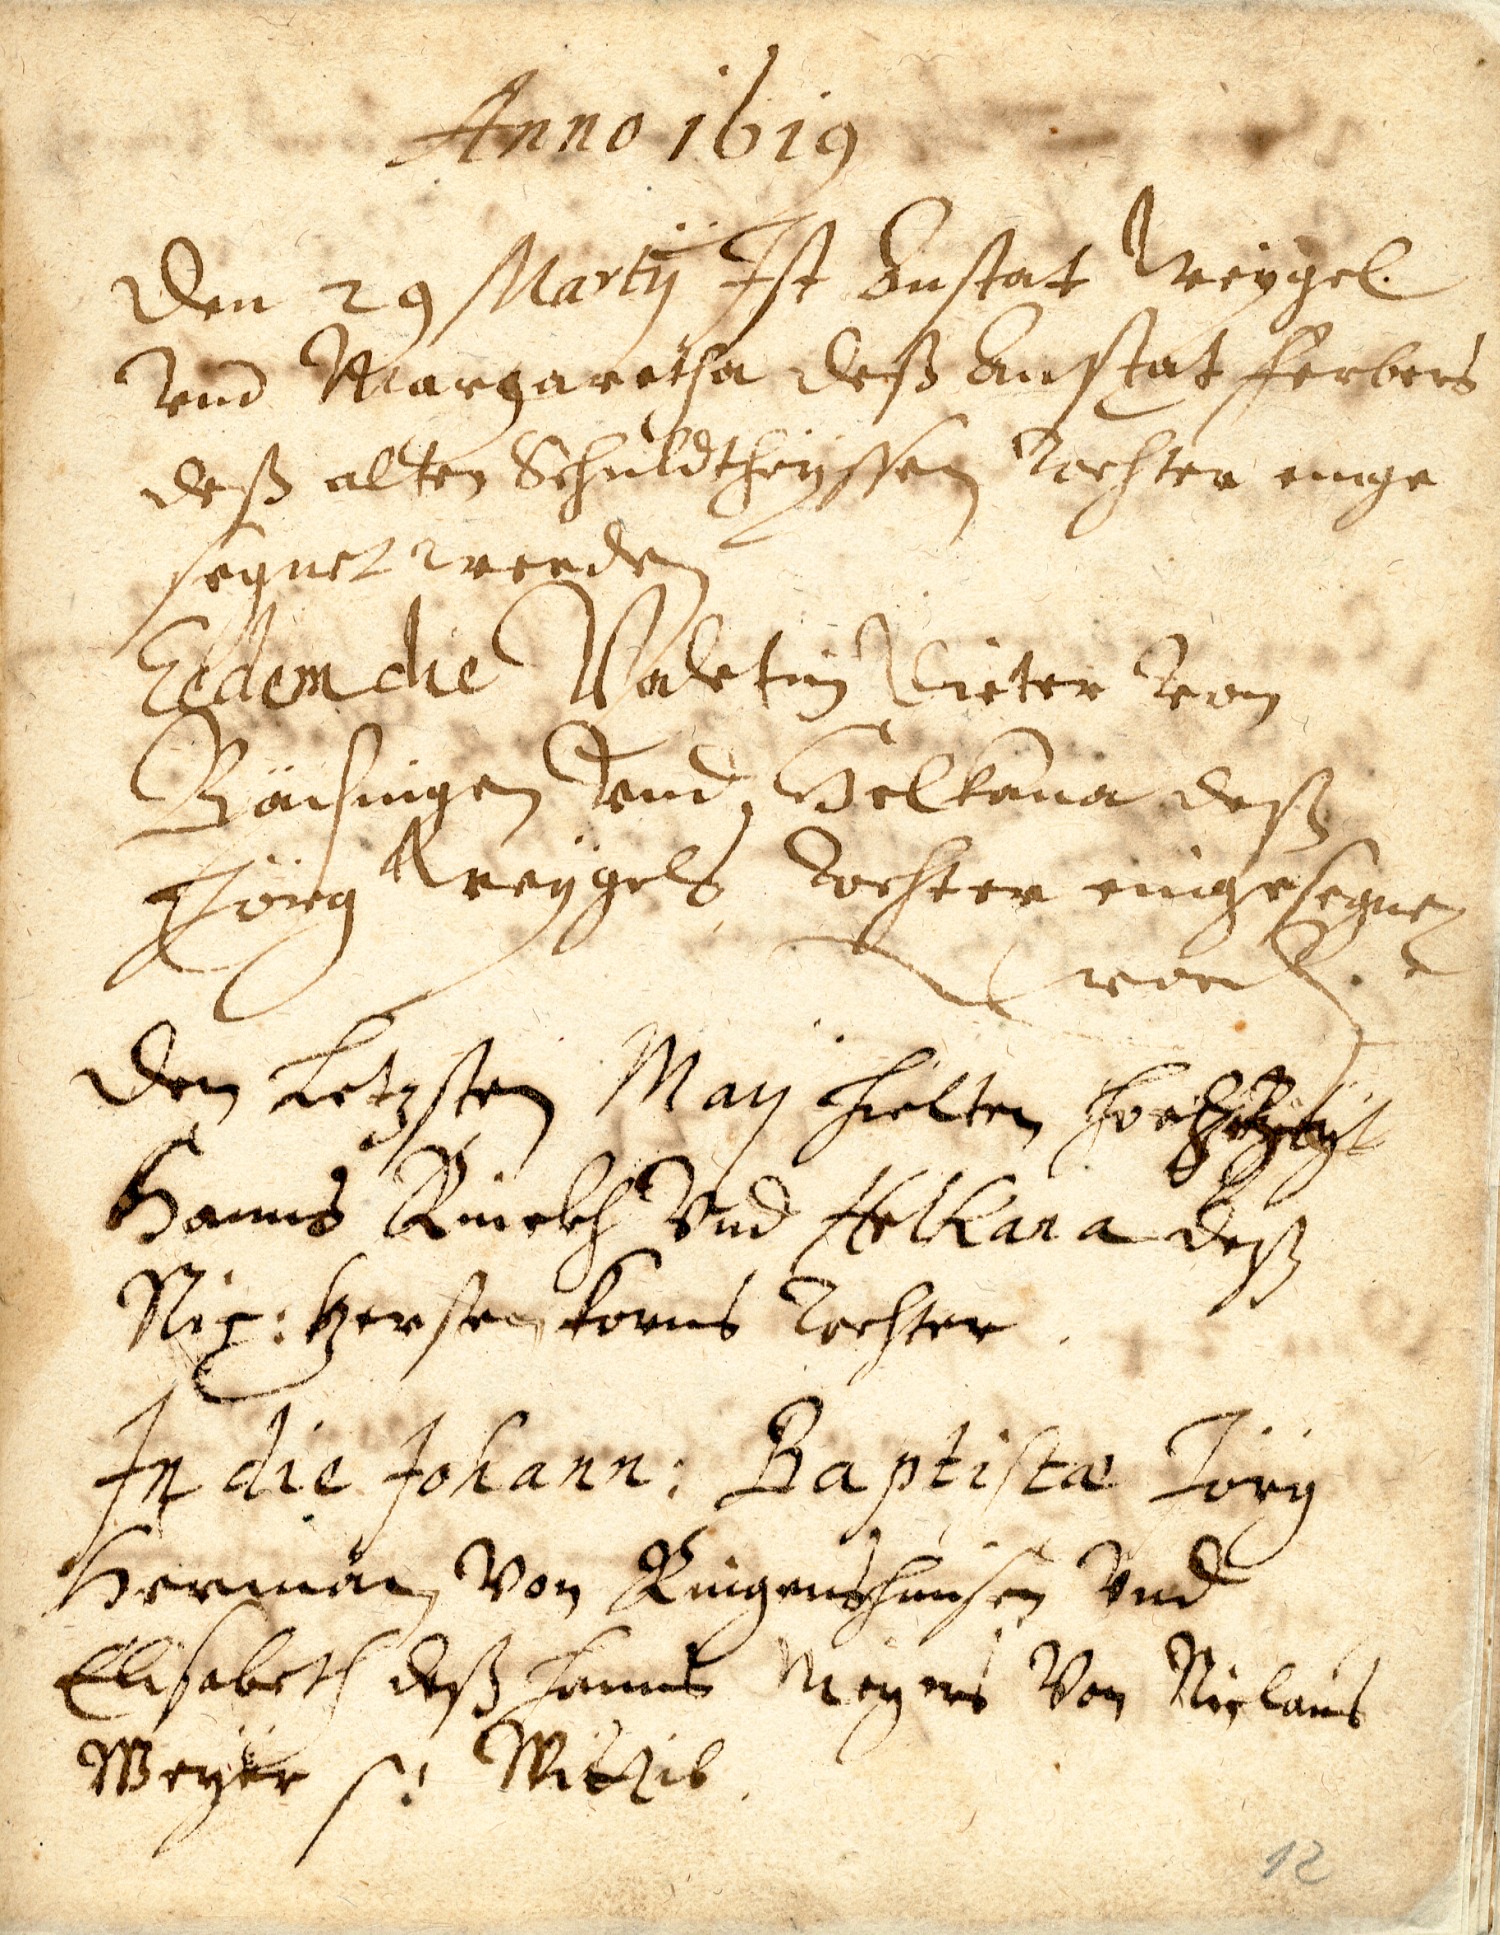 Anno 1619
Den 29 Martÿ Ist Anstat Weÿgel.
Vnd Margaretha deß Anstat Ferbers
deß alten Schuldtheÿssen Tochter einge
segnet worden
Eedem die Valetin Dieter von
Bäisingen Vnd Helkana deß
Jörg Weÿgels Tochter eingesegnet
word.
Den Letzsten Maÿ hielten
Hanns Rueckh Vnd Helkana deß
Nic: Gerstenkorns Tochter.
In die Johann: Baptistæ Jörg
Herman Von Ringenshausen Vnd
Elisabeth deß Hanns Meÿers Von Niclaus
Weÿer s: Wittib.
12